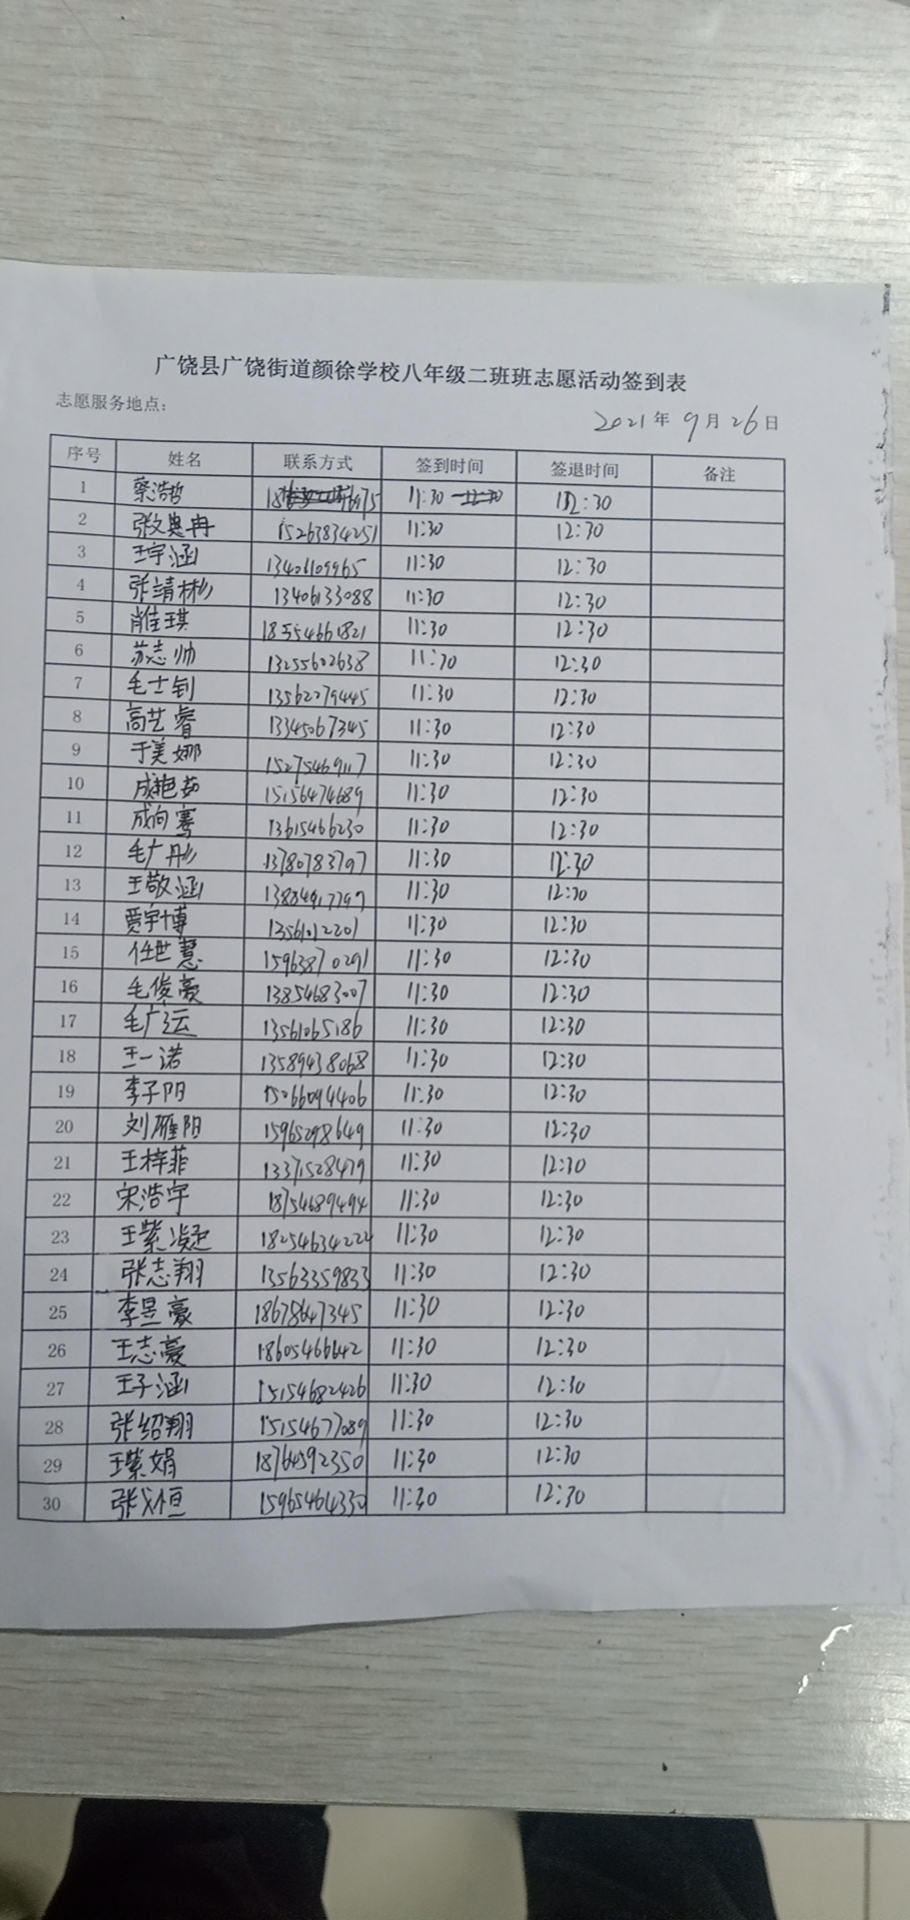 广饶县广饶街道颜徐学校八年级二班班志愿活动签到表
志愿服务地点：
2021年9月26日
序号 姓名 联系方式 签到时间 签退时间 备注
1 蔡浩哲 11:30 12:30
2 张文冉 15263834251 11:30 12:30
3 王宇涵 13406109965 11:30 12:30
4 张靖彬 13406133088 11:30 12:30
5 肖佳琪 18554661821 11:30 12:30
6 苏志帅 13255602638 11:30 12:30
7 毛士钊 13562279445 11:30 12:30
8 高艺睿 13345067345 11:30 12:30
9 于美娜 15275469117 11:30 12:30
10 成艳茹 15156474689 11:30 12:30
11 成向骞 13615466230 11:30 12:30
12 毛广彤 13780783797 11:30 12:30
13 王敬涵 11:30 12:30
14 贾宇博 11:30 12:30
15 任世慧 15963870291 11:30 12:30
16 毛俊豪 13854683007 11:30 12:30
17 毛广运 13561065186 11:30 12:30
18 王一诺 13589438068 11:30 12:30
19 李子阳 15266094406 11:30 12:30
20 刘雁阳 15965298649 11:30 12:30
21 王梓菲 13371528479 11:30 12:30
22 宋浩宇 18754689494 11:30 12:30
23 王紫凝 18254634222 11:30 12:30
24 张志翔 13563359833 11:30 12:30
25 李昱豪 18678647345 11:30 12:30
26 王志豪 18605466642 11:30 12:30
27 王子涵 15154682426 11:30 12:30
28 张绍翔 15154677089 11:30 12:30
29 王紫娟 18764592350 11:30 12:30
30 张恒 15965464330 11:30 12:30